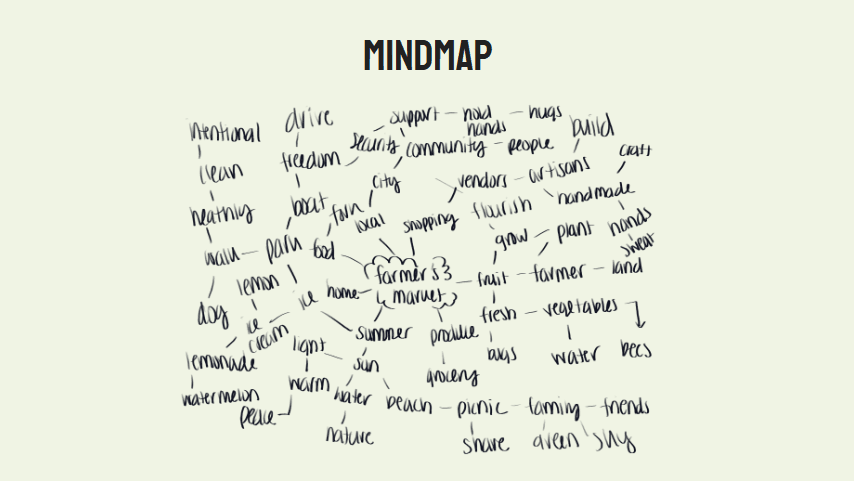 MINDMAP
drive
support
hold hands
hugs
build
intentional
security
community
people
craft
freedom
clean
city
vendors
artisans
handmade
boat
farm
local
shopping
flourish
heathly
hands
sweat
walk
park
food
grow
plant
farmer's market
fruit
farmer
land
lemon
ice
home
dog
ice cream
light
summer
produce
fresh
vegetables
bugs
water
bees
lemonade
sun
grocery
watermelon
warm
water
beach
picnic
family
friends
peace
nature
share
green
sky